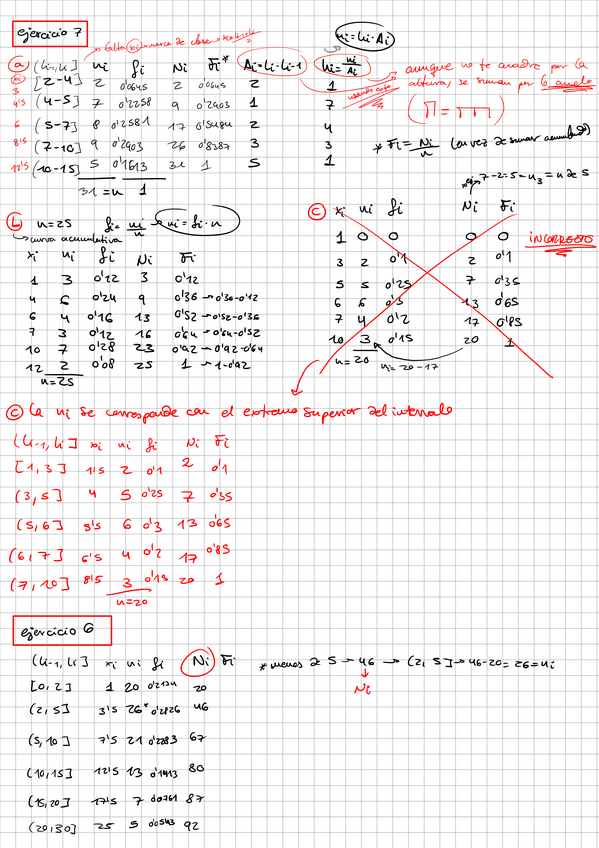 ejercicio 7
ni = hi·Ai
falta xi → marca de clase
a (Li-1, Li] ni fi Ni Fi* Ai = Li - Li-1 hi = ni/Ai
xi
3 [2-4] 2 0'0645 2 0'0645 2 1
4'5 (4-5] 7 0'2258 9 0'2903 1 7
6 (5-7] 8 0'2581 17 0'5484 2 4
8'5 (7-10] 9 0'2903 26 0'8387 3 3
12'5 (10-15] 5 0'1613 31 1 5 1
31 = n 1
usando esto
aunque no te cuadre por la
altura, se suman por 6
* Fi = Ni/n (en vez de sumar acumulando)
b n=25 fi = ni/n → ni = fi·n
→ curva acumulativa
xi ni fi Ni Fi
1 3 0'12 3 0'12
4 6 0'24 9 0'36 → 0'36-0'12
6 4 0'16 13 0'52 → 0'52-0'36
7 3 0'12 16 0'64 → 0'64-0'52
10 7 0'28 23 0'92 → 0'92-0'64
12 2 0'08 25 1 → 1-0'92
n=25
ej. 7-2=5=n3=n de 5
c xi ni fi Ni Fi
1 0 0 0 0
INCORRECTO
3 2 0'1 2 0'1
5 5 0'25 7 0'35
6 6 0'3 13 0'65
7 4 0'2 17 0'85
10 3 0'15 20 1
n=20 ni=20-17
c La ni se corresponde con el extremo superior del intervalo
(Li-1, Li] xi ni fi Ni Fi
[1, 3] 1'5 2 0'1 2 0'1
(3, 5] 4 5 0'25 7 0'35
(5, 6] 5'5 6 0'3 13 0'65
(6, 7] 6'5 4 0'2 17 0'85
(7, 10] 8'5 3 0'15 20 1
n=20
ejercicio 6
(Li-1, Li] xi ni fi Ni Fi
* menos de 5 → 46 → (2, 5] → 46-20 = 26 = ni
Ni
[0, 2] 1 20 0'2174 20
(2, 5] 3'5 26* 0'2826 46
(5, 10] 7'5 21 0'2283 67
(10, 15] 12'5 13 0'1413 80
(15, 20] 17'5 7 0'0761 87
(20, 30] 25 5 0'0543 92